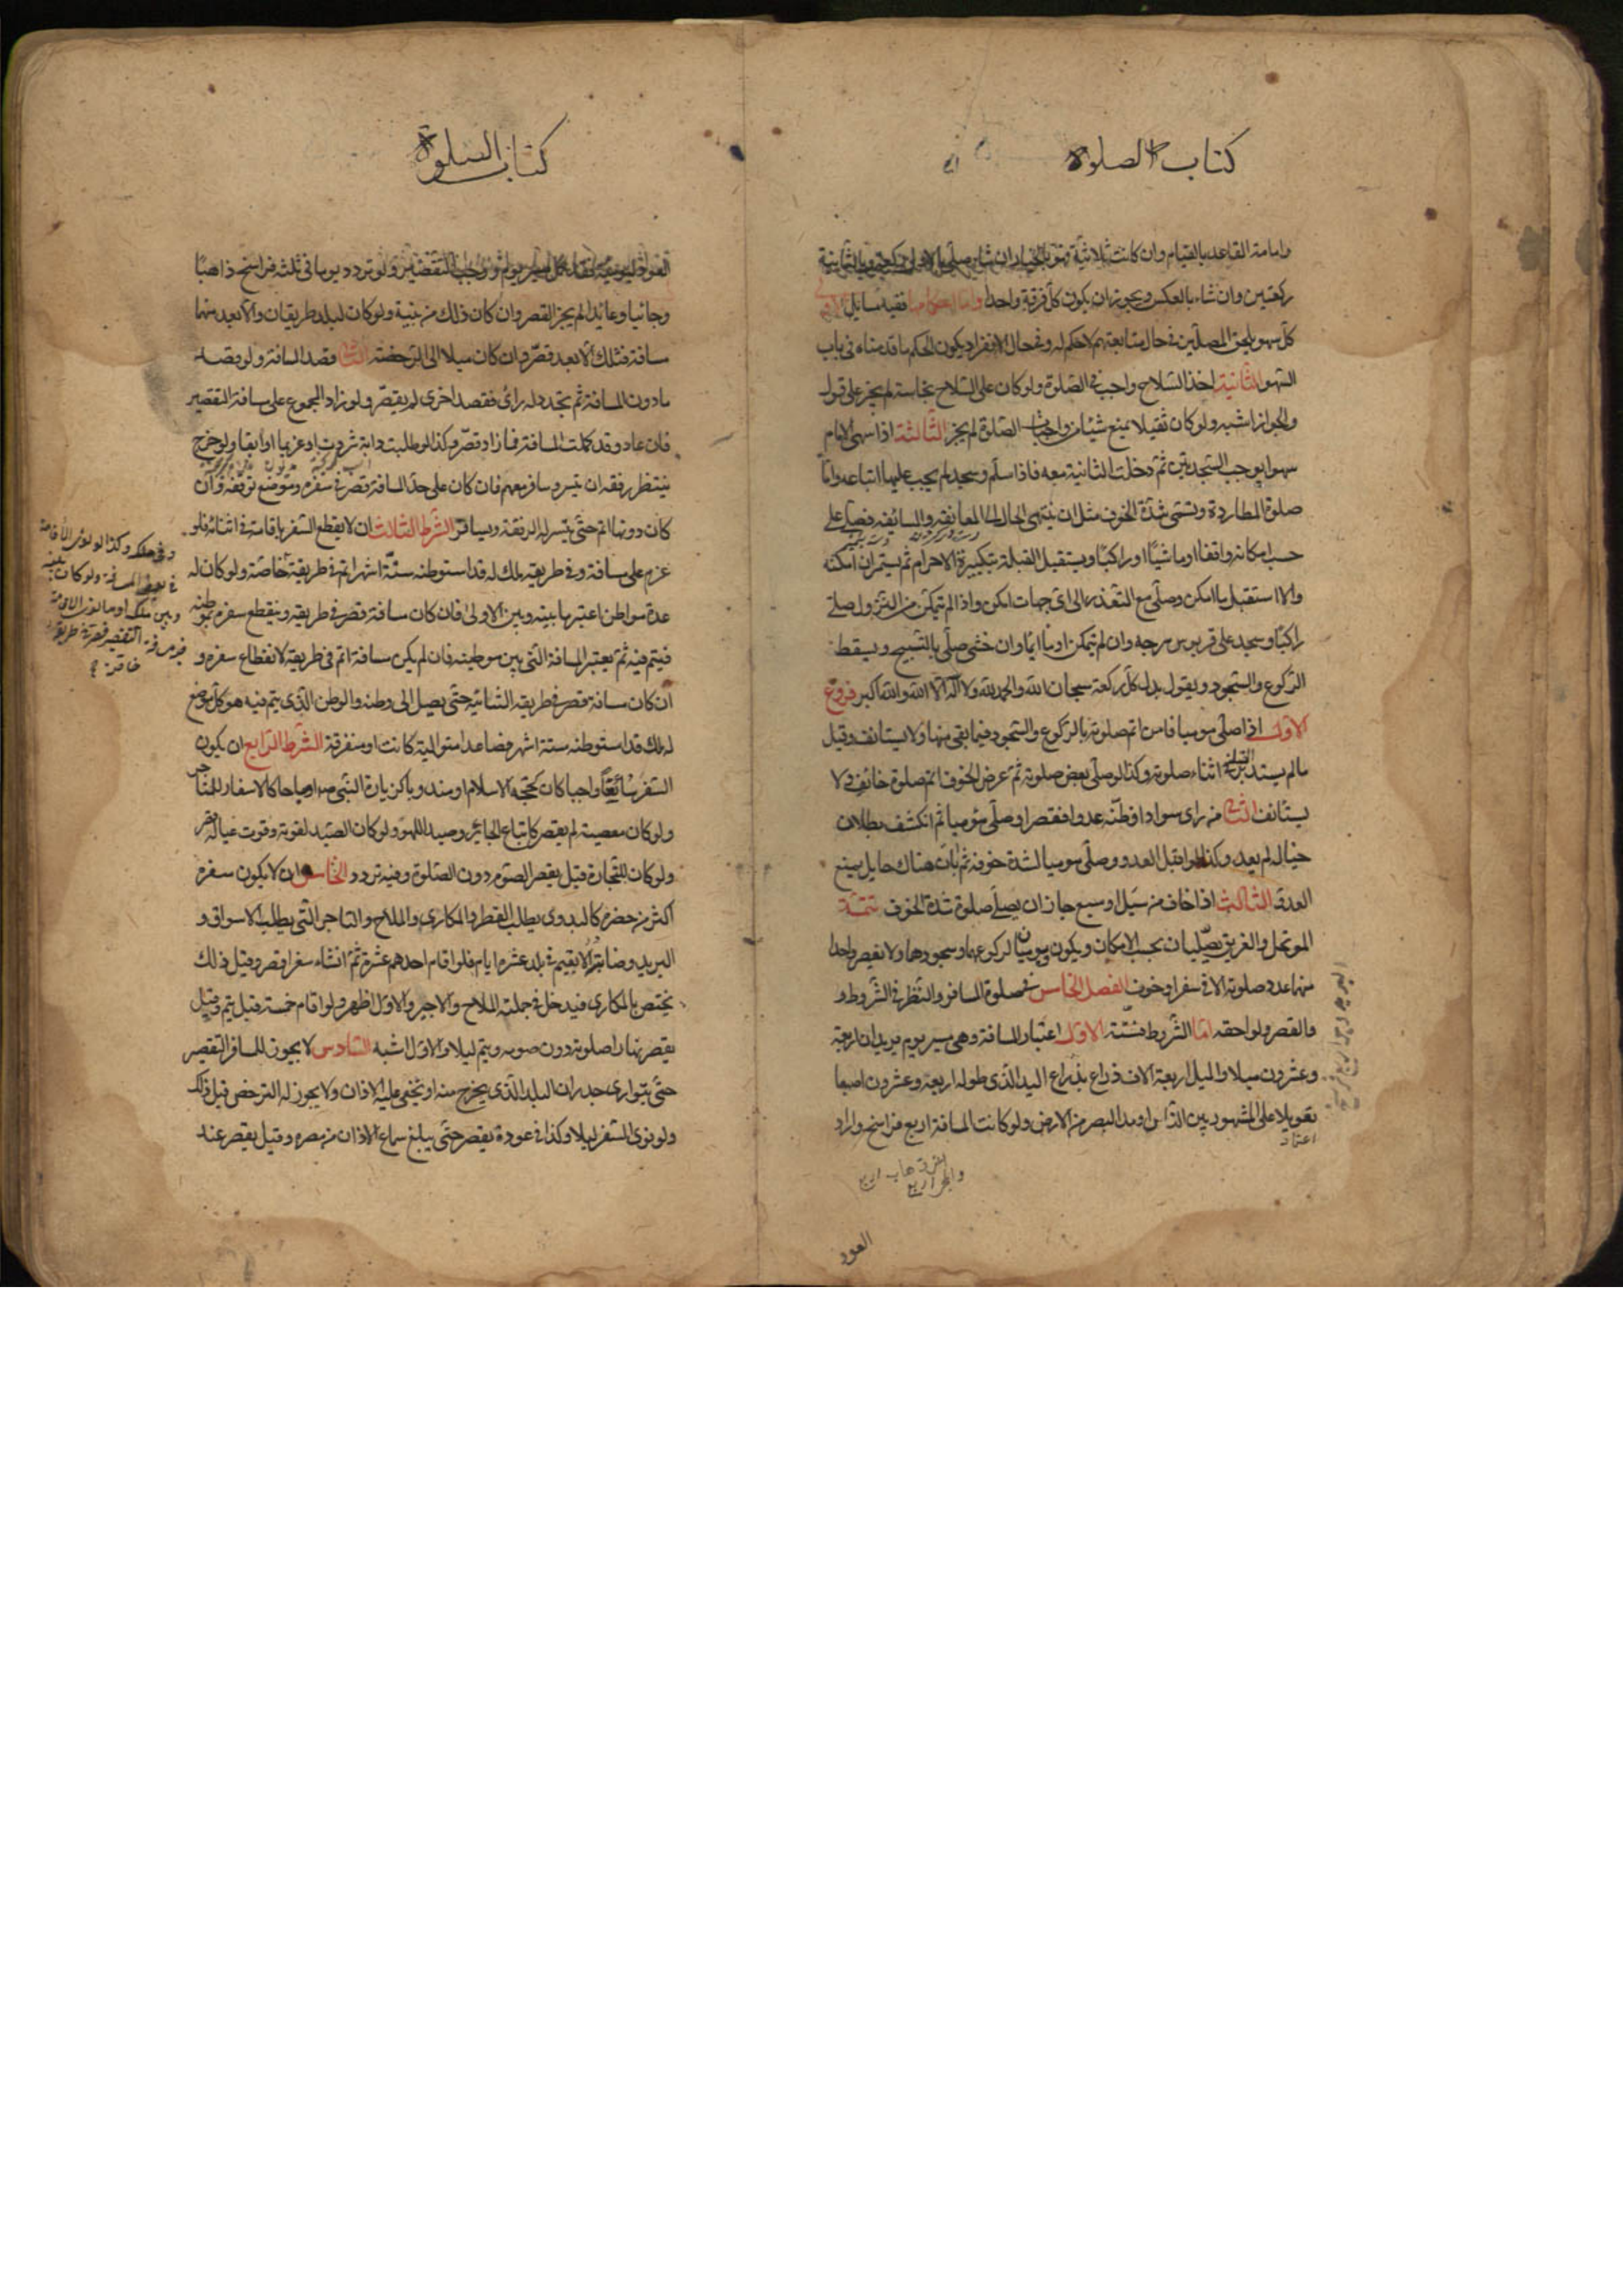 كتاب الصلوة
وامامة القاعد بالقيام وان كانت ثلاثية فهو بالخيار ان شاء صلى بالاولى ركعة وبالثانية
ركعتين وان شاء بالعكس ويجوز ان يكون كل فرقة واحدا واما احكامها ففيه مسايل الاولى
كل سهو يلحق المصلين في حال متابعتهم لا حكم له وفي حال الانفراد يكون الحكم ما قدمناه في باب
السهو الثانية اخذ السلاح واجب في الصلوة ولو كان على السلاح نجاسة لم يجز على قول
والجواز اشبه ولو كان ثقيلا يمنع شيئا من واجبات الصلوة لم يجز الثالثة اذا سهى الامام
سهوا يوجب السجدتين ثم دخلت الثانية معه فاذا سلم وسجد لم يجب عليها اتباعه واما
صلوة المطاردة وتسمى شدة الخوف مثل ان ينتهى الحال الى المعانقه والمسايفه فصلى على
حسب امكانه واقفا او ماشيا او راكبا ويستقبل القبلة بتكبيرة الاحرام ثم يستمر ان امكنه
والا استقبل بما امكن وصلى مع التعذر الى اى جهات امكن واذا لم يتمكن من النزول صلى
راكبا وسجد على قربوس سرجه وان لم يتمكن اومأ ايماء وان خشى صلى بالتسبيح ويسقط
الركوع والسجود ويقول بدل كل ركعة سبحان الله والحمد لله ولا اله الا الله والله اكبر فروع
الاول اذا صلى موميا فامن اتم صلوته بالركوع والسجود فيما بقى منها ولا يستانف وقيل
مالم يستدبر القبلة في اثناء صلوته وكذا لو صلى بعض صلوته ثم عرض الخوف اتم صلوة خائف ولا
يستانف الثانى من راى سوادا فظنه عدوا فقصر او صلى موميا ثم انكشف بطلان
خياله لم يعد وكذا لو اقبل العدو وصلى موميا لشدة خوفه ثم بان هناك حايل يمنع
العدو الثالث اذا خاف من سيل او سبع جاز ان يصلى صلوة شدة الخوف تتمة
الموتحل والغريق يصليان بحسب الامكان ويكون يوميان لركوعهما وسجودهما ولا يقصر واحد
منهما عدد صلوته الا في سفر او خوف الفصل الخامس في صلوة المسافر والنظر في الشروط و
والقصر ولواحقه اما الشروط فستة الاول اعتبار المسافة وهى مسير يوم بريدان اربعة
وعشرون ميلا والميل اربعة الاف ذراع بذراع اليد الذى طوله اربعة وعشرون اصبعا
تعويلا على المشهور بين الناس او مد البصر من الارض ولو كانت المسافة اربع فراسخ واراد
العود
كتاب الصلوة
العود ليومه فقد كمل مسير يوم ووجب التقصير ولو تردد يوما في ثلثة فراسخ ذاهبا
وجائيا وعائدا لم يجز القصر وان كان ذلك من نيته ولو كان لبلد طريقان والابعد منهما
مسافة فسلك الابعد قصر وان كان ميلا الى الرخصة الثانى قصد المسافة ولو قصد
مادون المسافة ثم تجدد له راى فقصد اخرى لم يقصر ولو زاد المجموع على مسافة التقصير
فان عاد وقد كملت المسافة فما زاد قصر وكذا لو طلب دابة شردت او غريما او ابقا ولو خرج
ينتظر رفقه ان تيسر وسافر معهم فان كان على حد المسافة قصر في سفره وموضع توقفه وان
كان دونها اتم حتى يتيسر له الرفقة ويسافر الشرط الثالث ان لا يقطع السفر باقامته في اثنائه فلو
عزم على مسافة وفي طريقه ملك له قد استوطنه ستة اشهر اتم في طريقه خاصة ولو كان له
عدة مواطن اعتبر ما بينه وبين الاولى فان كان مسافة قصر في طريقه وينقطع سفره بموطنه
فيتم فيه ثم يعتبر المسافة التى بين موطنيه فان لم يكن مسافة اتم في طريقه لانقطاع سفره و
ان كان مسافة قصر في طريقه الثانية حتى يصل الى وطنه والوطن الذى يتم فيه هو كل موضع
له ملك قد استوطنه ستة اشهر فصاعدا متوالية كانت او متفرقة الشرط الرابع ان يكون
السفر سائغا واجبا كان كحجة الاسلام او مندوبا كزيارة النبى او مباحا كالاسفار للمتاجر
ولو كان معصية لم يقصر كاتباع الجائر وصيد اللهو ولو كان الصيد لقوته وقوت عياله قصر
ولو كان للتجارة قيل يقصر الصوم دون الصلوة وفيه تردد الخامس ان لا يكون سفره
اكثر من حضره كالبدوى يطلب القطر والمكارى والملاح والتاجر التى يطلب الاسواق و
البريد وضابطه ان لا يقيم في بلد عشرة ايام فلو اقام احدهم عشرة ثم انشاء سفرا قصر وقيل ذلك
يختص بالمكارى فيدخل في جملته الملاح والاجير والاول اظهر ولو اقام خمسة قيل يتم وقيل
يقصر نهارا صلوته دون صومه ويتم ليلا والاول اشبه السادس لا يجوز للمسافر التقصير
حتى يتوارى جدران البلد الذى يخرج منه او يخفى عليه الاذان ولا يجوز له الترخص قبل ذلك
ولو نوى السفر ليلا وكذا في عوده يقصر حتى يبلغ سماع الاذان من مصره وقيل يقصر عند
وفي ملكه وكذا لو نوى الاقامة
في بعض المسافة ولو كان بينه
وبين ملكه او ما نوى الاقامة
فيه مسافة التقصير قصر في طريقه
خاصة